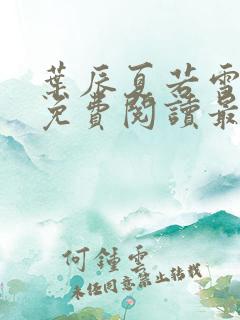 葉辰夏若雪
免費閱讀最
何鍾雲
未經同意禁止轉載